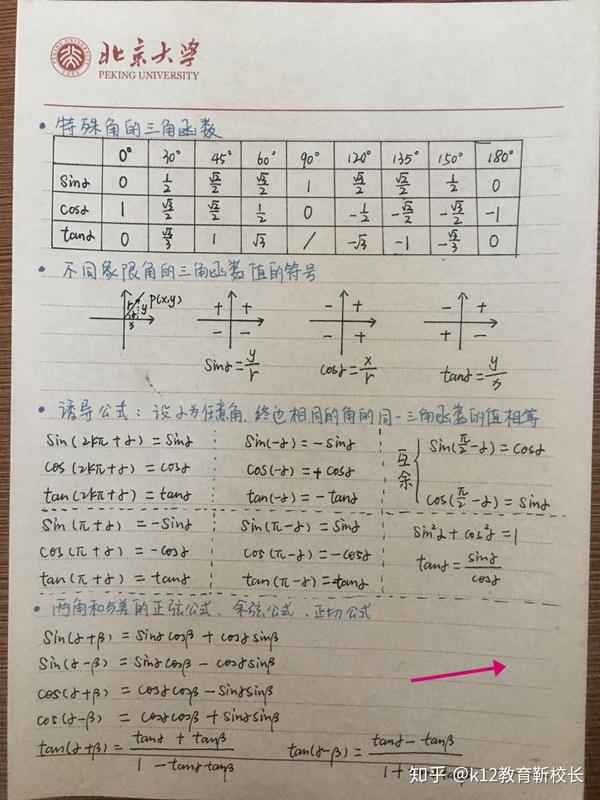 北京大学
PEKING UNIVERSITY
• 特殊角的三角函数
0° 30° 45° 60° 90° 120° 135° 150° 180°
sinα 0 1/2 √2/2 √3/2 1 √3/2 √2/2 1/2 0
cosα 1 √3/2 √2/2 1/2 0 -1/2 -√2/2 -√3/2 -1
tanα 0 √3/3 1 √3 / -√3 -1 -√3/3 0
• 不同象限角的三角函数值的符号
r P(x,y) y α x
+ + - -
- + - +
- + + -
sinα=y/r cosα=x/r tanα=y/x
• 诱导公式：设α为任意角，终边相同的角的同一三角函数的值相等
sin(2kπ+α)=sinα sin(-α)=-sinα 互余 sin(π/2-α)=cosα
cos(2kπ+α)=cosα cos(-α)=+cosα
tan(2kπ+α)=tanα tan(-α)=-tanα cos(π/2-α)=sinα
sin(π+α)=-sinα sin(π-α)=sinα sin²α+cos²α=1
cos(π+α)=-cosα cos(π-α)=-cosα tanα=sinα/cosα
tan(π+α)=tanα tan(π-α)=-tanα
• 两角和与差的正弦公式、余弦公式、正切公式
sin(α+β)=sinαcosβ+cosαsinβ
sin(α-β)=sinαcosβ-cosαsinβ
cos(α+β)=cosαcosβ-sinαsinβ
cos(α-β)=cosαcosβ+sinαsinβ
tan(α+β)=(tanα+tanβ)/(1-tanαtanβ) tan(α-β)=(tanα-tanβ)/(1+
知乎 @k12教育靳校长